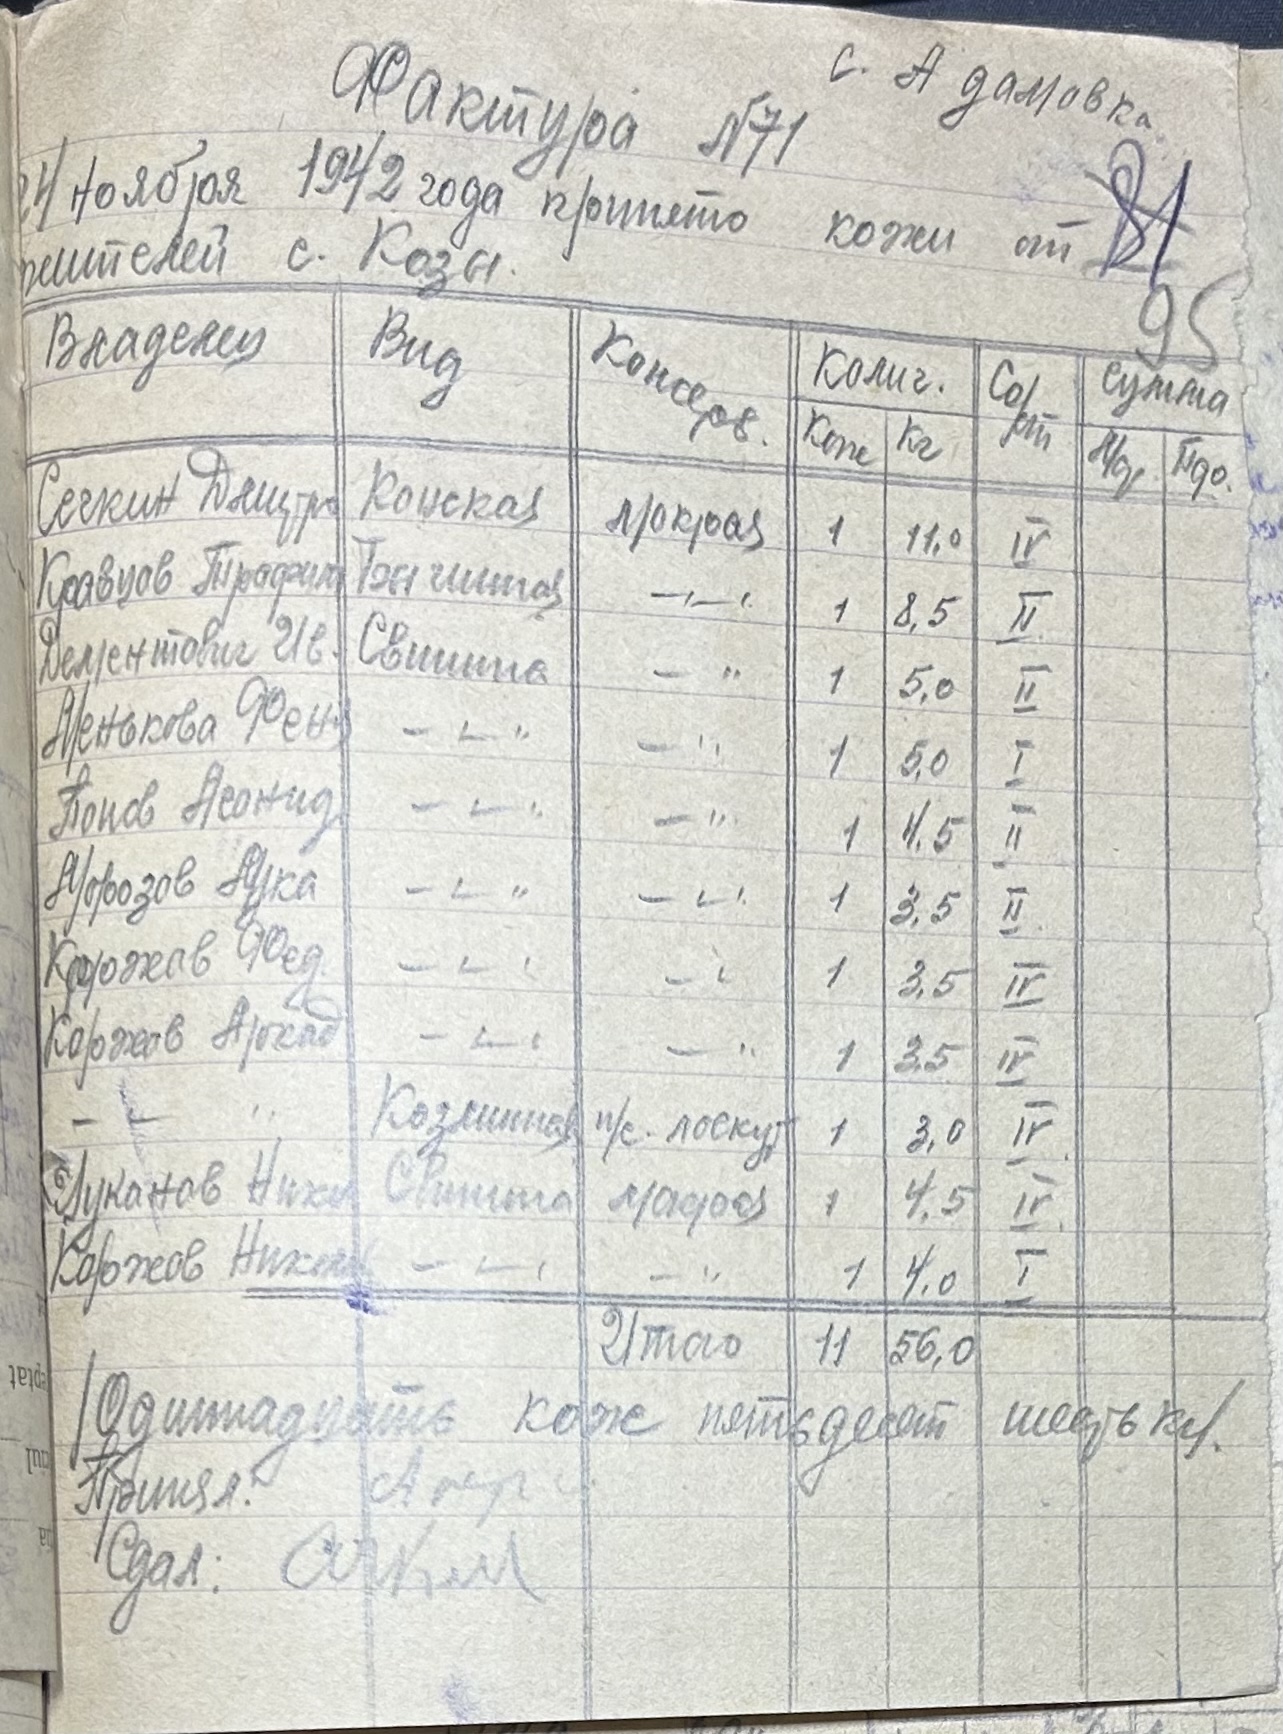 с. Адамовка
Фактура №71
24 ноября 1942 года принято кожи от
жителей с. Козы.
81
95
Владелец Вид Консерв. Колич. Сорт Сумма
Кож Кг
Сечкин Дмитро Конская мокрая 1 11,0 IV
Кравцов Трофим Бычиная -〃- 1 8,5 II
Дементович Ив. Свиная -〃 1 5,0 II
Менькова Феня -〃 -〃 1 5,0 I
Попов Леонид -〃 -〃 1 4,5 II
Морозов Лука -〃 -〃 1 3,5 II
Коржов Фед. -〃 -〃 1 3,5 IV
Коржов Аркад -〃 -〃 1 3,5 IV
-〃 Козлиная п/с. лоскут 1 3,0 IV
Луканов Никл Свиная мокрая 1 4,5 IV
Коржов Никол -〃 -〃 1 4,0 I
Итого 11 56,0
/Одиннадцать кож пятьдесят шесть кг/.
Принял:
Сдал: Сечкин